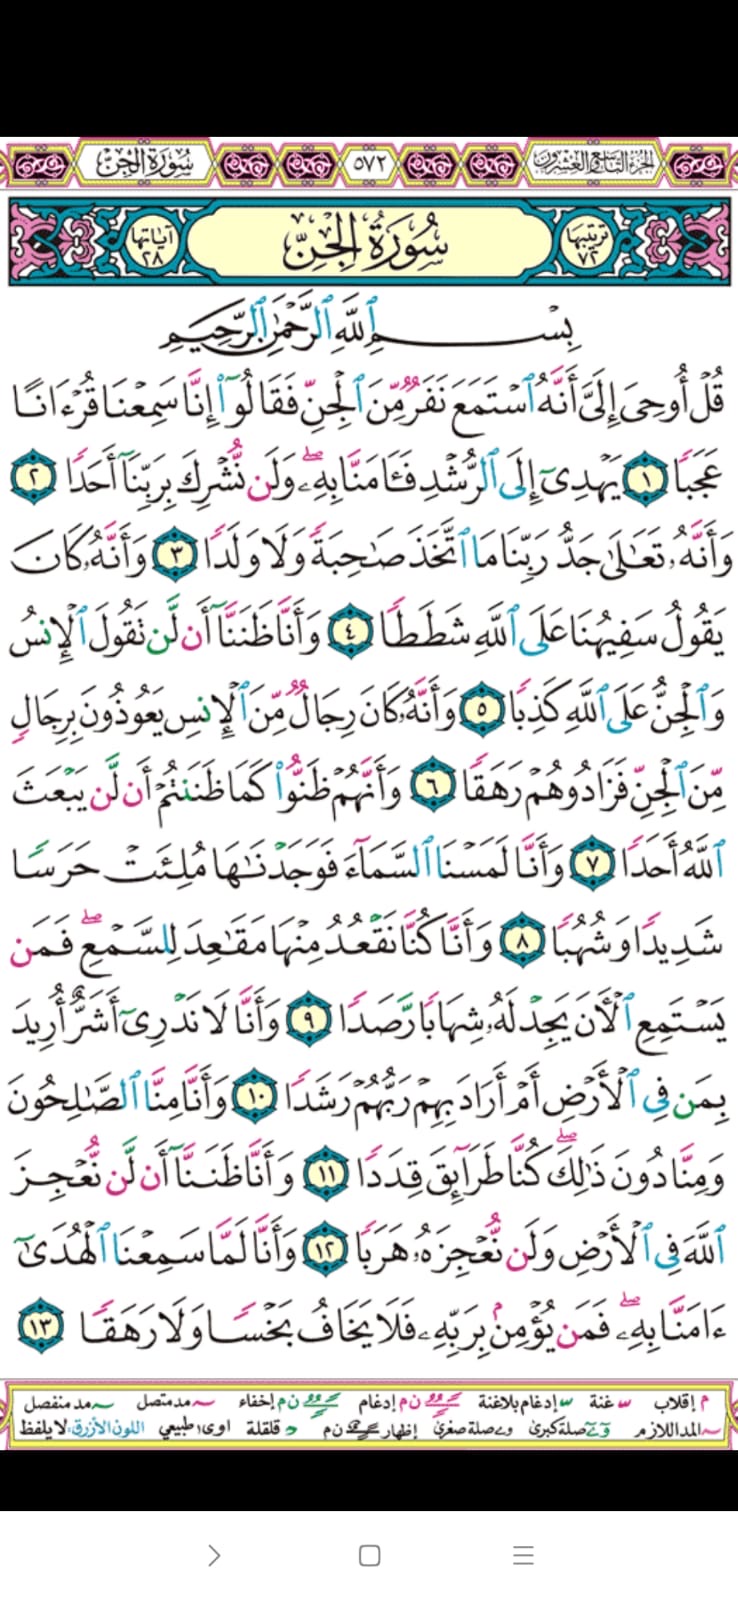 الجزء التاسع والعشرون ٥٧٢ سُورَةُ الجِنّ
ترتيبها ٧٢ سُورَةُ الجِنِّ آياتها ٢٨
بِسْمِ ٱللَّهِ ٱلرَّحْمَٰنِ ٱلرَّحِيمِ
قُلْ أُوحِيَ إِلَيَّ أَنَّهُ ٱسْتَمَعَ نَفَرٌ مِّنَ ٱلْجِنِّ فَقَالُوٓا۟ إِنَّا سَمِعْنَا قُرْءَانًا
عَجَبًا ١ يَهْدِىٓ إِلَى ٱلرُّشْدِ فَـَٔامَنَّا بِهِۦ ۖ وَلَن نُّشْرِكَ بِرَبِّنَآ أَحَدًا ٢
وَأَنَّهُۥ تَعَٰلَىٰ جَدُّ رَبِّنَا مَا ٱتَّخَذَ صَٰحِبَةً وَلَا وَلَدًا ٣ وَأَنَّهُۥ كَانَ
يَقُولُ سَفِيهُنَا عَلَى ٱللَّهِ شَطَطًا ٤ وَأَنَّا ظَنَنَّآ أَن لَّن تَقُولَ ٱلْإِنسُ
وَٱلْجِنُّ عَلَى ٱللَّهِ كَذِبًا ٥ وَأَنَّهُۥ كَانَ رِجَالٌ مِّنَ ٱلْإِنسِ يَعُوذُونَ بِرِجَالٍ
مِّنَ ٱلْجِنِّ فَزَادُوهُمْ رَهَقًا ٦ وَأَنَّهُمْ ظَنُّوا۟ كَمَا ظَنَنتُمْ أَن لَّن يَبْعَثَ
ٱللَّهُ أَحَدًا ٧ وَأَنَّا لَمَسْنَا ٱلسَّمَآءَ فَوَجَدْنَٰهَا مُلِئَتْ حَرَسًا
شَدِيدًا وَشُهُبًا ٨ وَأَنَّا كُنَّا نَقْعُدُ مِنْهَا مَقَٰعِدَ لِلسَّمْعِ ۖ فَمَن
يَسْتَمِعِ ٱلْـَٔانَ يَجِدْ لَهُۥ شِهَابًا رَّصَدًا ٩ وَأَنَّا لَا نَدْرِىٓ أَشَرٌّ أُرِيدَ
بِمَن فِى ٱلْأَرْضِ أَمْ أَرَادَ بِهِمْ رَبُّهُمْ رَشَدًا ١٠ وَأَنَّا مِنَّا ٱلصَّٰلِحُونَ
وَمِنَّا دُونَ ذَٰلِكَ ۖ كُنَّا طَرَآئِقَ قِدَدًا ١١ وَأَنَّا ظَنَنَّآ أَن لَّن نُّعْجِزَ
ٱللَّهَ فِى ٱلْأَرْضِ وَلَن نُّعْجِزَهُۥ هَرَبًا ١٢ وَأَنَّا لَمَّا سَمِعْنَا ٱلْهُدَىٰٓ
ءَامَنَّا بِهِۦ ۖ فَمَن يُؤْمِنۢ بِرَبِّهِۦ فَلَا يَخَافُ بَخْسًا وَلَا رَهَقًا ١٣
م إقلاب غنة إدغام بلاغنة ن م إدغام ن م إخفاء مد متصل مد منفصل
المد اللازم صلة كبرى صلة صغرى إظهار ن م قلقلة اوى طبيعي اللون الأزرق:لا يلفظ